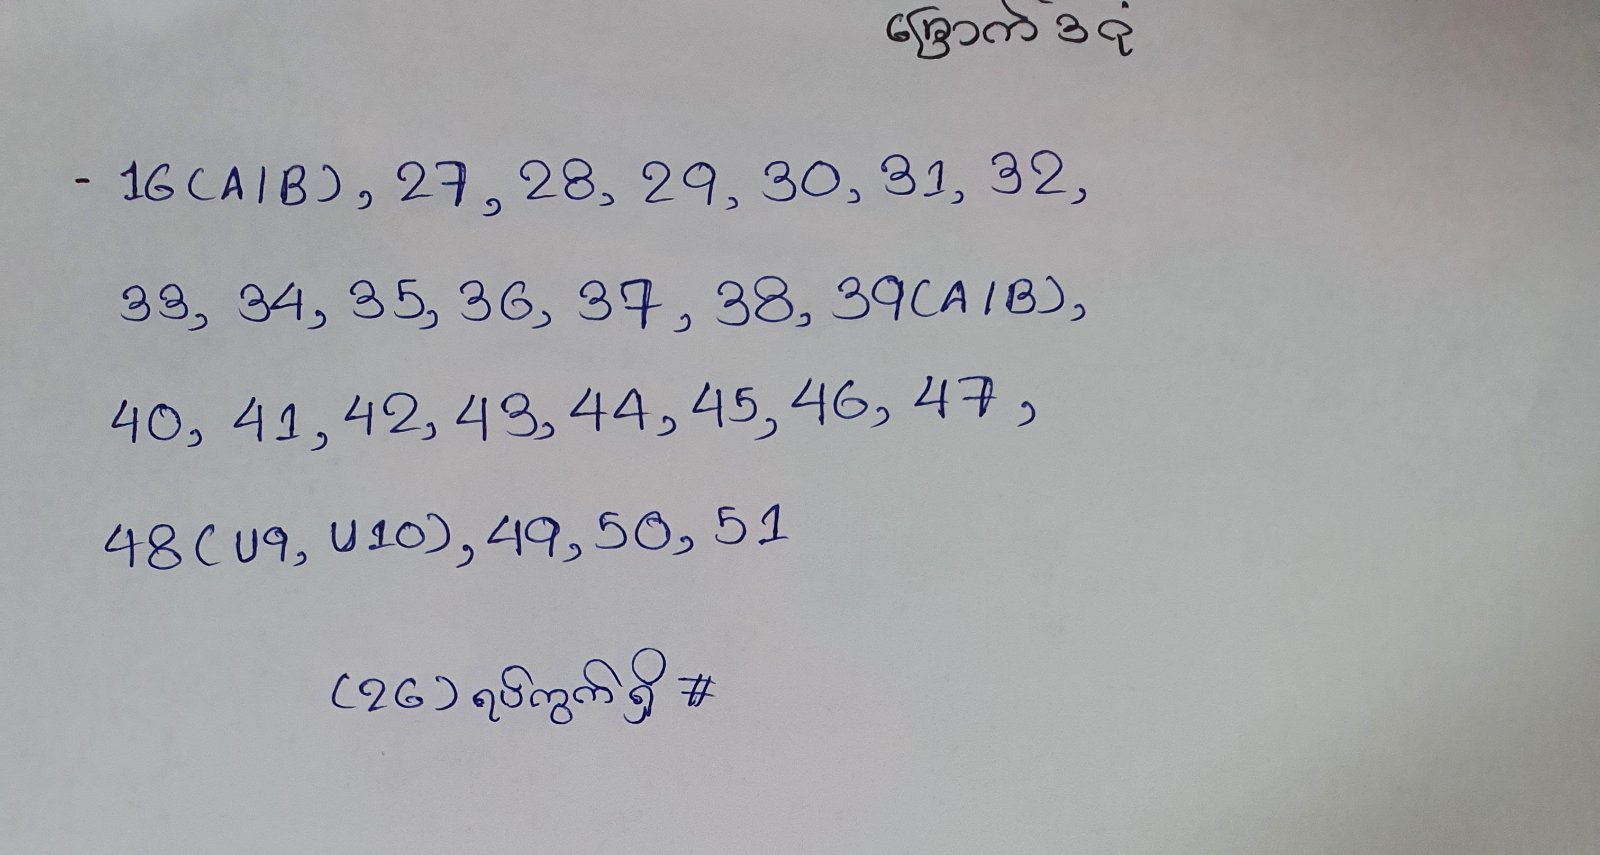 မြောက်ဒဂုံ
- 16(A/B), 27, 28, 29, 30, 31, 32,
33, 34, 35, 36, 37, 38, 39(A/B),
40, 41, 42, 43, 44, 45, 46, 47,
48(U9, U10), 49, 50, 51
(26) ရပ်ကွက်ရှိ #